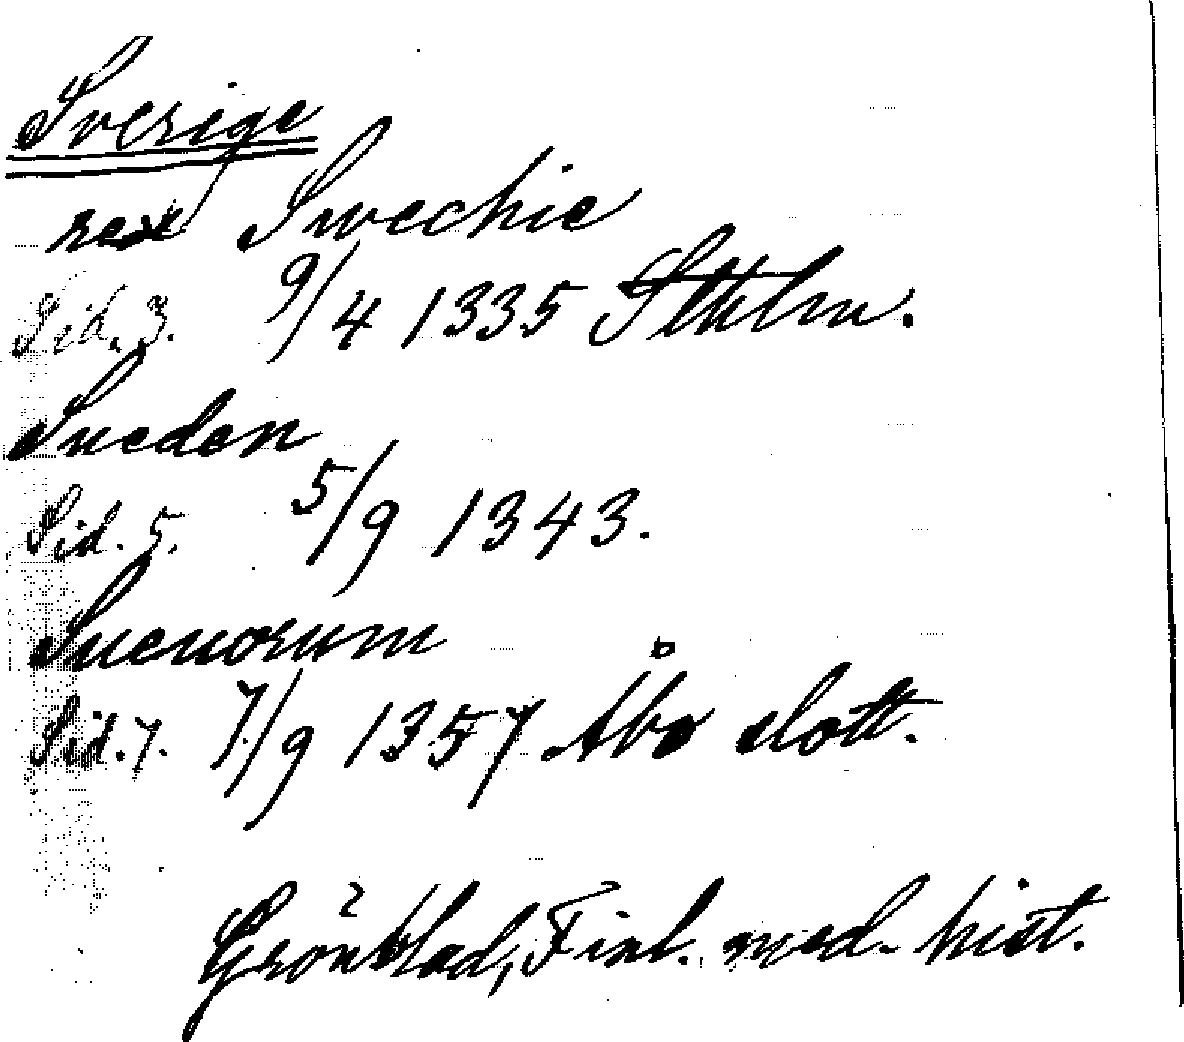 Sverige
rex Swechie
Sid. 3. 9/4 1335 Sthlm.
Sueden
Sid. 5. 5/9 1343.
Sueuorum
Sid. 7. 7/9 1357 Åbo slott.
Grönblad, Finl. med. hist.